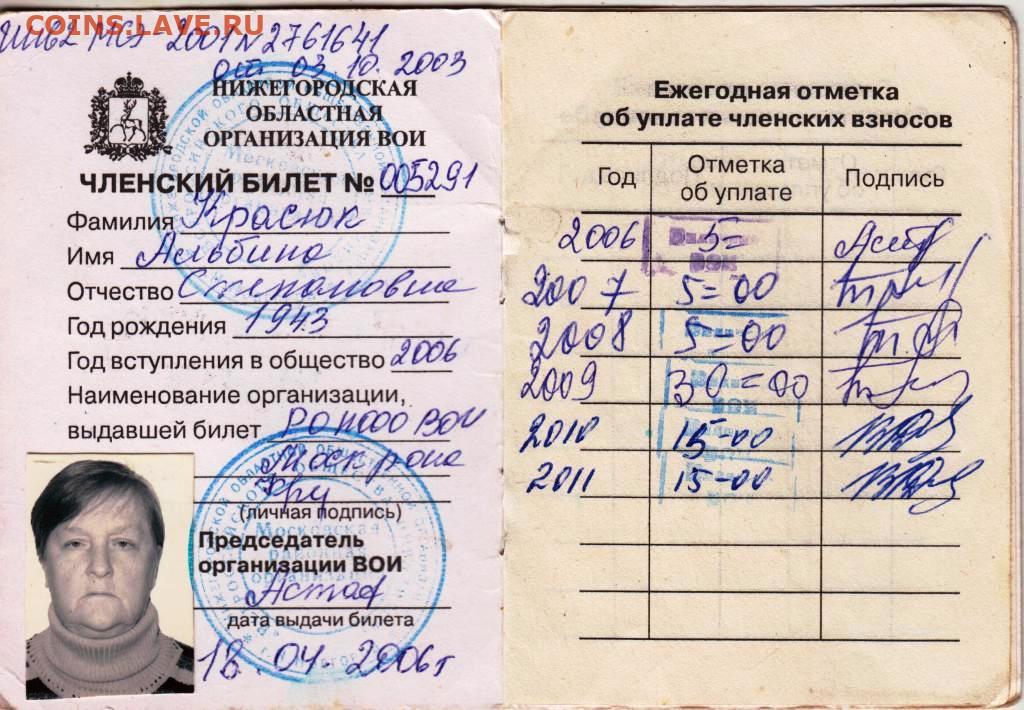 COINS.LAVE.RU
МСЭ 2001 № 2761641
от 03.10.2003
НИЖЕГОРОДСКАЯ
ОБЛАСТНАЯ
ОРГАНИЗАЦИЯ ВОИ
ЧЛЕНСКИЙ БИЛЕТ № 005291
Фамилия Красюк
Имя Альбина
Отчество Степановна
Год рождения 1943
Год вступления в общество 2006
Наименование организации,
выдавшей билет ВОИ
(личная подпись)
Председатель
организации ВОИ
дата выдачи билета
18.04.2006г
Московская
районная
организация
Ежегодная отметка
об уплате членских взносов
Год Отметка об уплате Подпись
2006 5=
ВОИ
2007 5=00
2008 5=00
2009 30=00
ВОИ
2010 15-00
2011 15-00